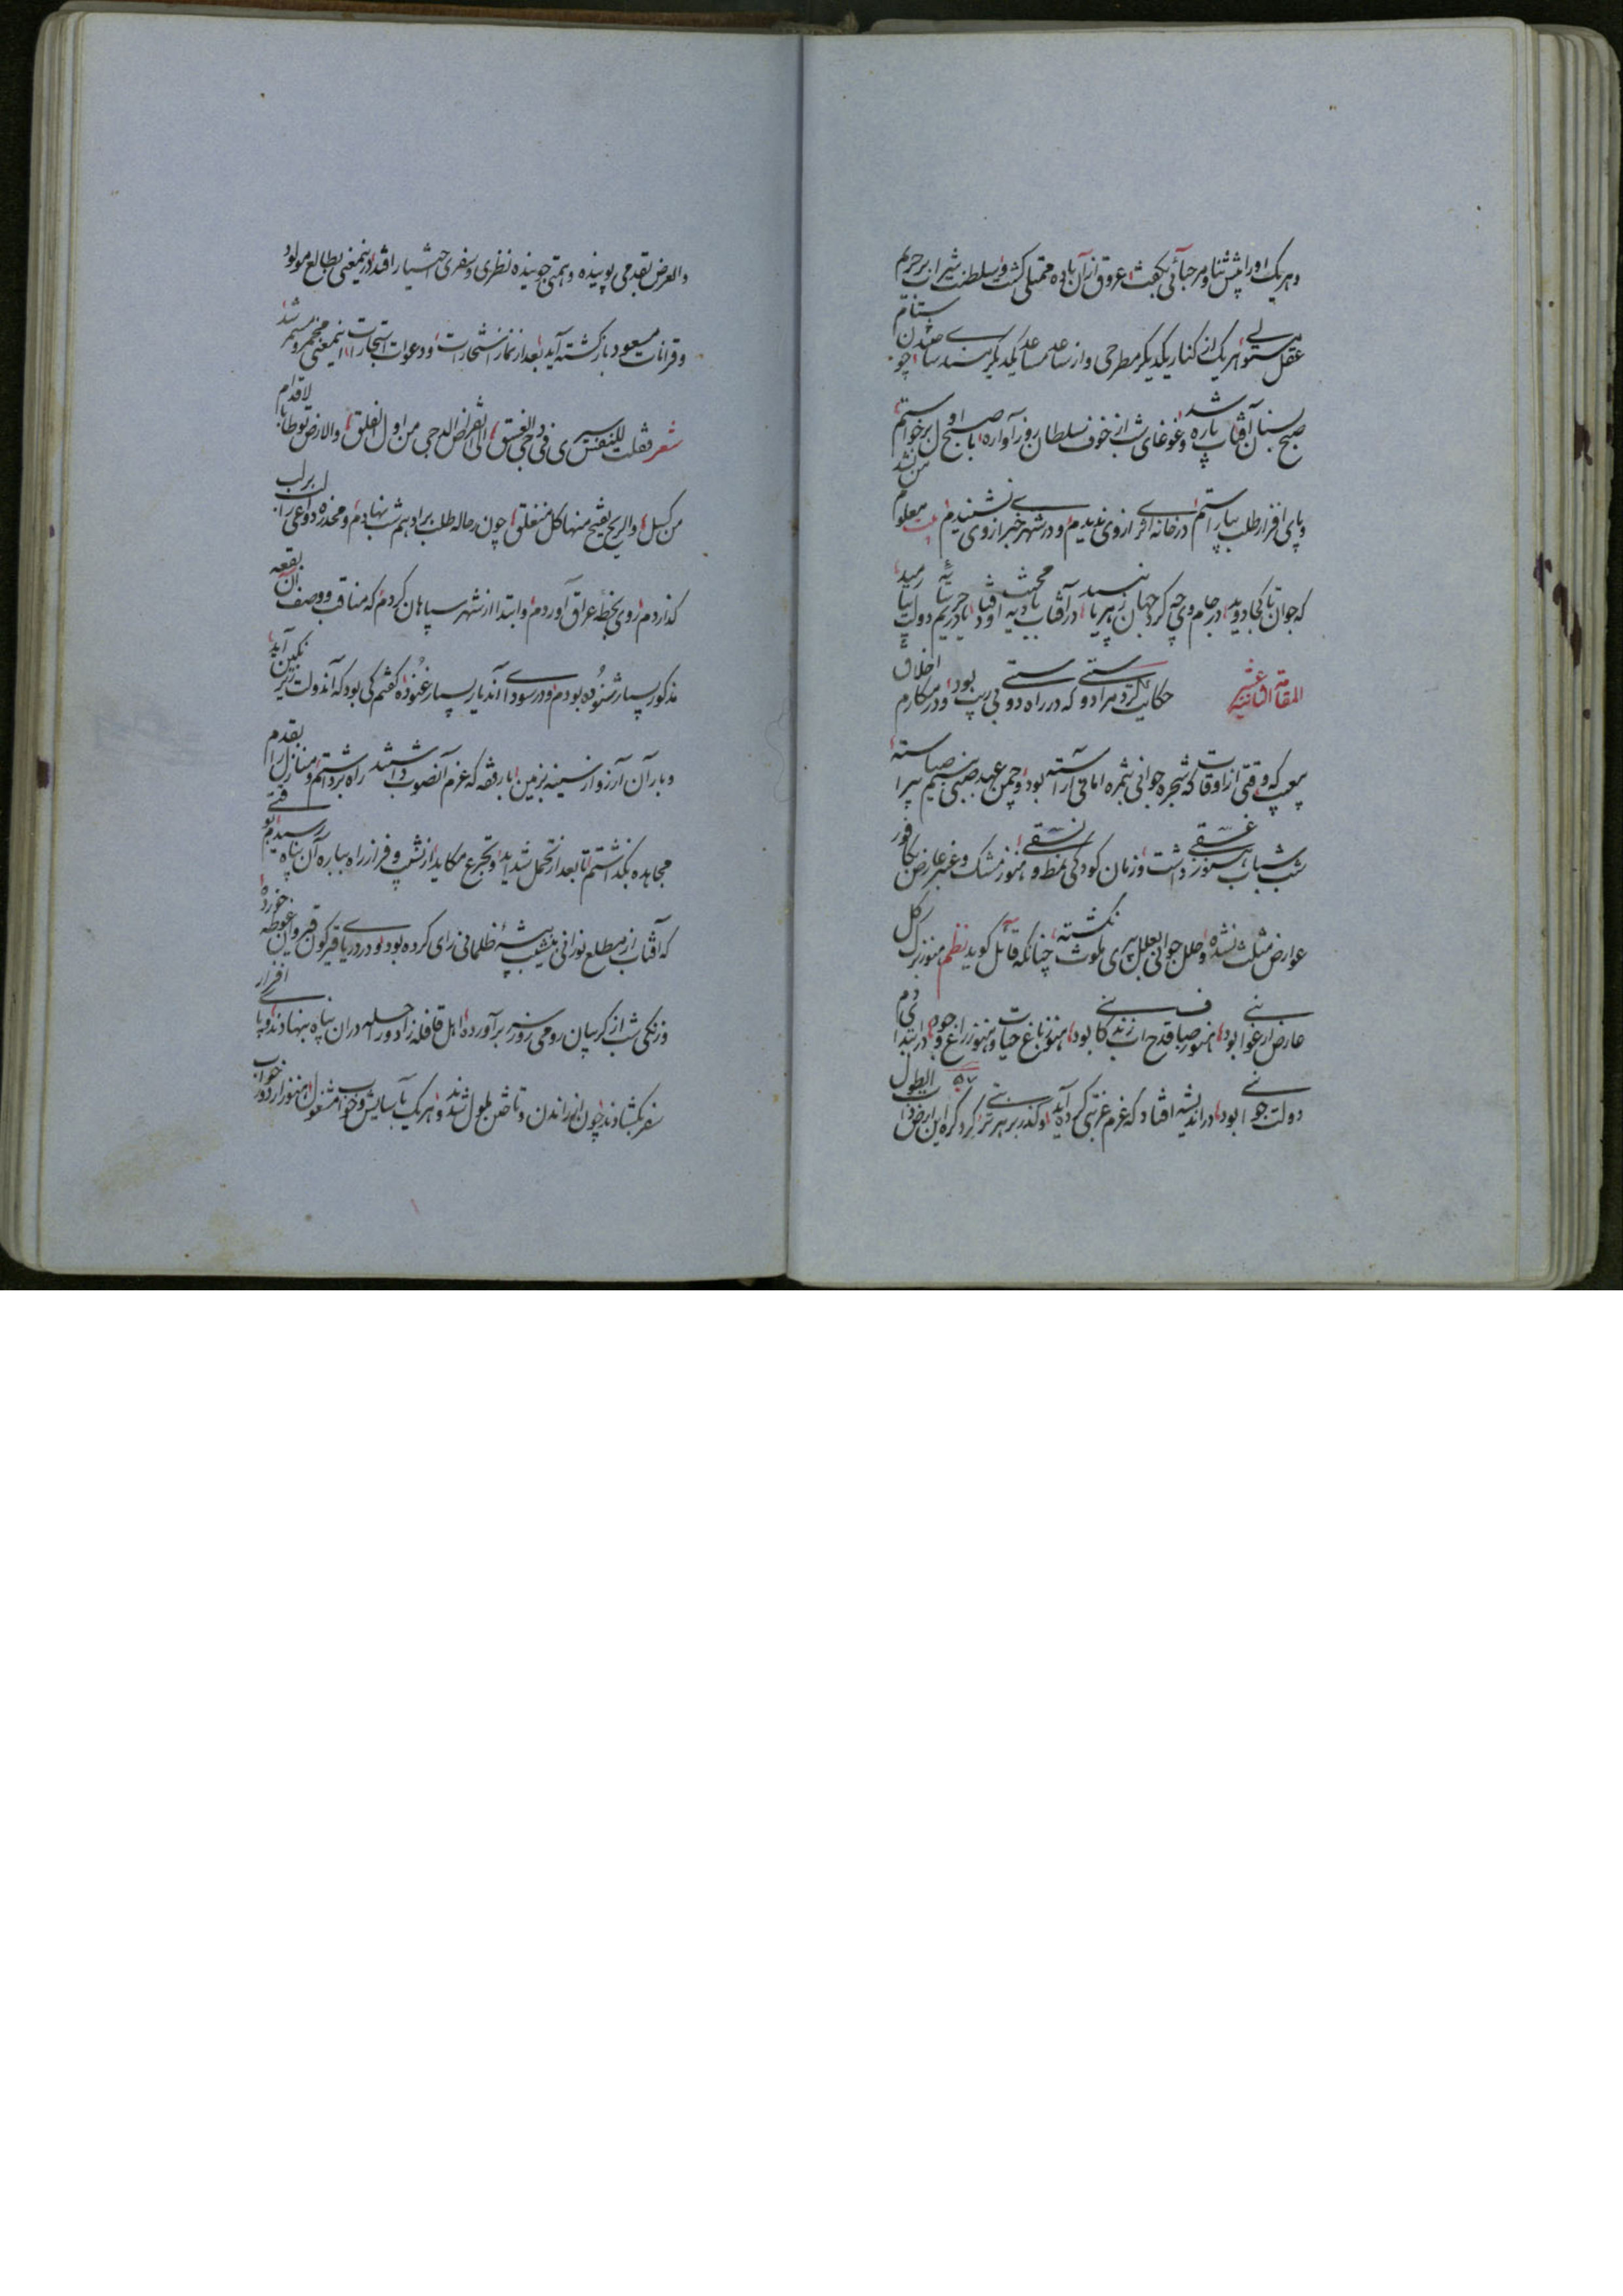 وهر یک اورا پیش ثنا و مرحبائی بگفت عروق از آن باده ممتلی گشت و سلطنت شراب بر حریم
عقل مستولی هر یک از کنار یکدیگر مطرحی و از ساعد مساعد یکدیگر مسندی ساختند چون
صبح سنان آفتاب پاره شد وغوغای شب از خوف سلطان روز آواره با صبح اول برخواستم
وپای افزار طلب بیاراستم در خانه اثری از وی ندیدم و در شهر خبر از وی نشنیدم معلوم من نشد
که جوان تا کجا دوید در جام وی چه کرد جهان
المقامة الثانیة عشر حکایت کرد مرا دوستی که در راه دوستی بی ریب بود و در مکارم اخلاق
بی عیب که وقتی از اوقات که شجره جوانی بثمره امانی آراسته بود وچمن عهد صبی بنسیم صبا پیراسته
شب شباب غسقی داشت وزمان کودکی نمط و نسقی هنوز مشک وعنبر عارض بکافور
عوارض مثلث نشده وحلل جوانی بعلل پیری ملوث نگشته چنانکه قائل گوید نظم هنوز برگ گل
عارض ارغوانی بود هنوز صبا قدح آب زندگانی بود هنوز باغ حیات وهنوز راغ وجود در ابتدای دم
دولت جوانی بود در اندیشه افتاد که عزم غربتی کرده آید وگذر بر هر تربتی کرد گرد این ارض ذات الطول
والعرض بقدمی پوینده وهمتی جوینده نظری وسفری اختیار افتد درینمعنی بطالع مولود
وقرانات مسعود بازگشته آید بعد از نماز استخارت ودعوات استجارت اینمعنی مخمر و مستمر شد
شعر فقلت للنفس سیری فی دجی الغسق الی انقراض الدجی من اول الفلق والارض توطأ بالاقدام
من کسل والریح تفتح منها کل منغلق چون رحاله طلب برادهم شب نهادم ومخدره دواعی را لب بر لب
گذاردم روی بخطه عراق آوردم وابتدا از شهر سپاهان کردم که مناقب و وصف آن بقعه
مذکور بسیار شنوده بودم ودر سودای آندیار بسیار غنوده گفتم کی بود که آندولت زیر نگین آید
وبار آن آرزو از سینه بزمین با رفقه که عزم آنصوب داشتند راه برداشتم ومنازل را بقدم
مجاهده بگذاشتم تا بعد از تحمل شداید وتجرع مکاید از نشیب وفراز راه بباره آن پناه رسیدیم بوقتی
که آفتاب از مطلع نورانی بنشیب بیشه ظلمانی رای کرده بود ودر دریای قیرگون قیروان غوطه خورده
وزنگی شب از گریبان رومی روز سر برآورده اهل قافله زاد وراحله در آن پناه بنهادند وپای افزار
سفر بگشادند چون از راندن وتاختن ملول شدند وهر یک بآسایش وخواب مشغول هنوز از دور خواب